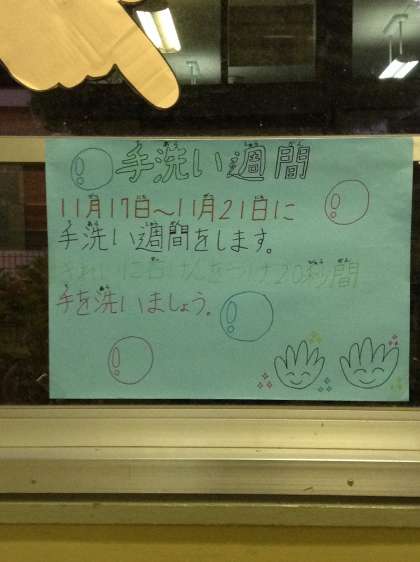 手洗い週間
11月17日～11月21日に
手洗い週間をします。
きれいに石けんをつけ20秒間
手を洗いましょう。